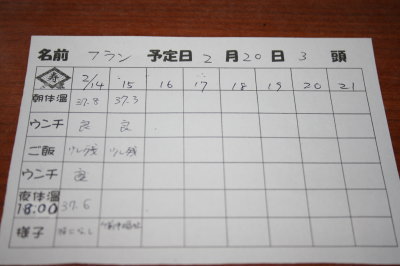 名前 フラン 予定日 2 月 20 日 3 頭
寿 2/14 15 16 17 18 19 20 21
朝体温 37.8 37.3
ウンチ 良 良
ご飯 少し残 少し残
ウンチ
夜体温 18:00 37.6
様子 特になし